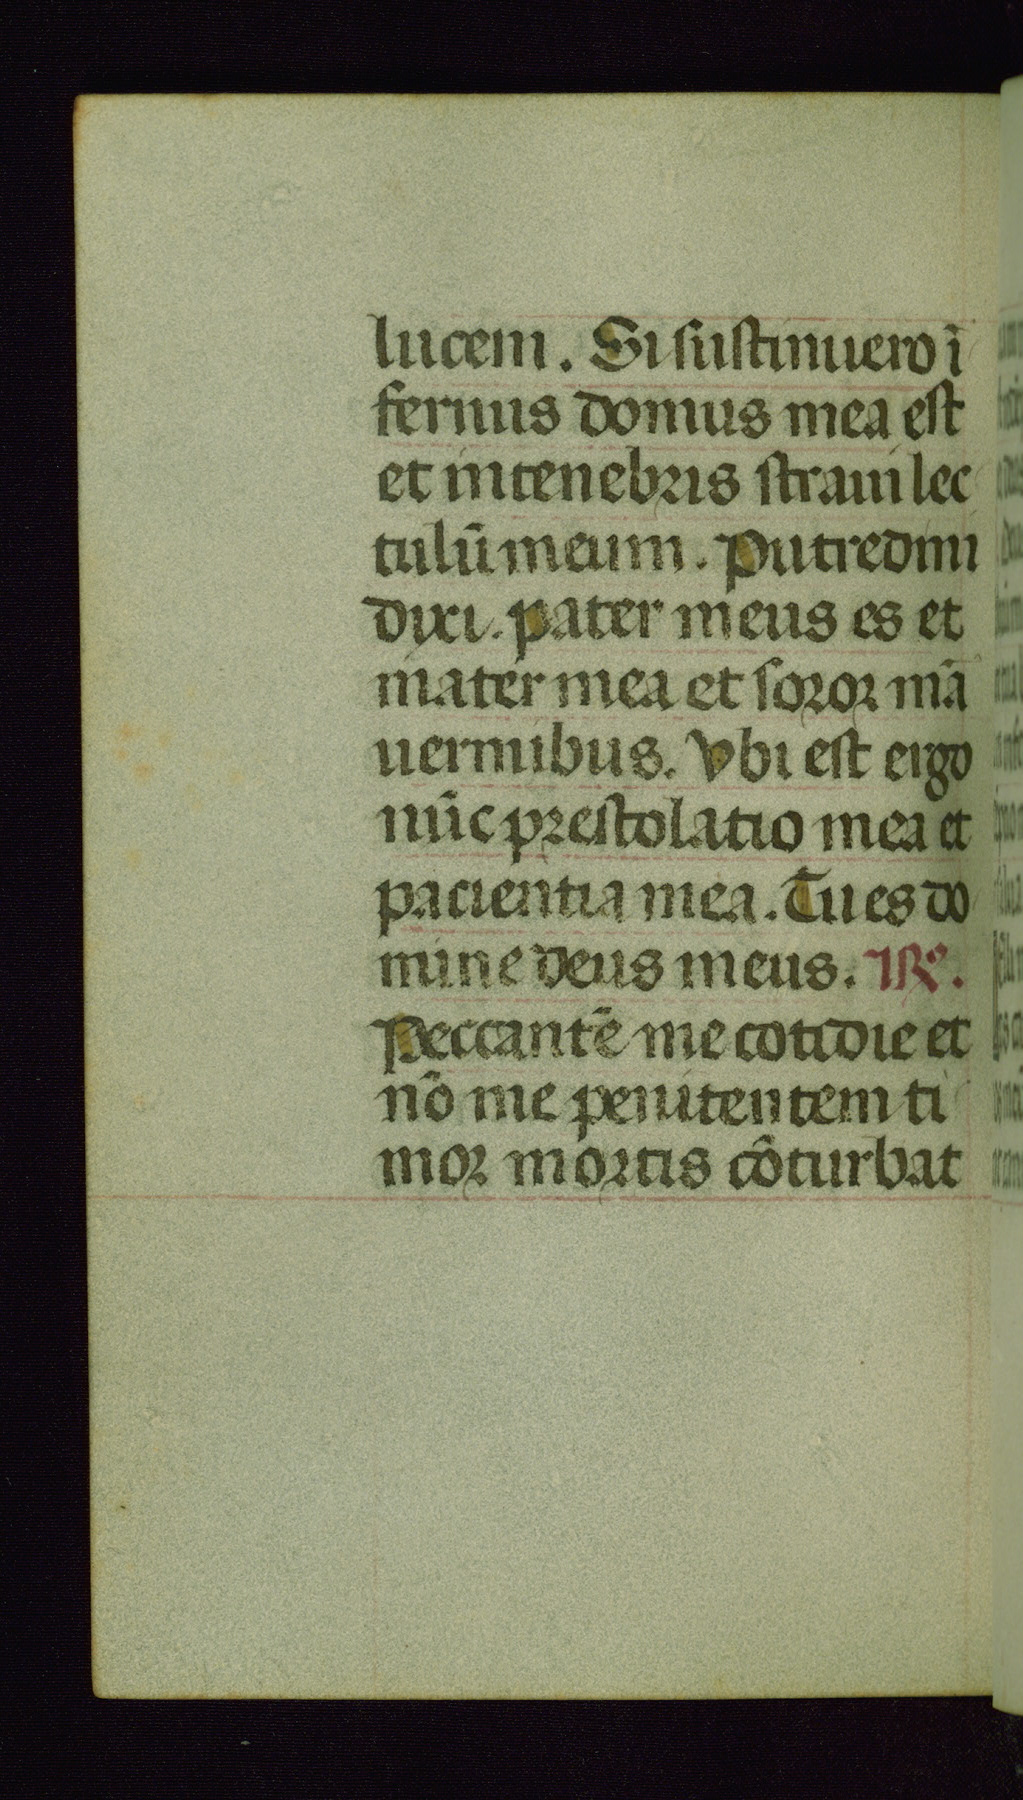 lucem. Si sustinuero ī
fernus domus mea est
et in tenebris straui lec
tulū meum. Putredini
dixi. pater meus es et
mater mea et soror mā
uermibus. Vbi est ergo
nūc prestolatio mea et
pacientia mea. Tu es do
mine deus meus. ℟.
Peccantē me cotidie et
nō me penitentem ti
mor mortis cōturbat